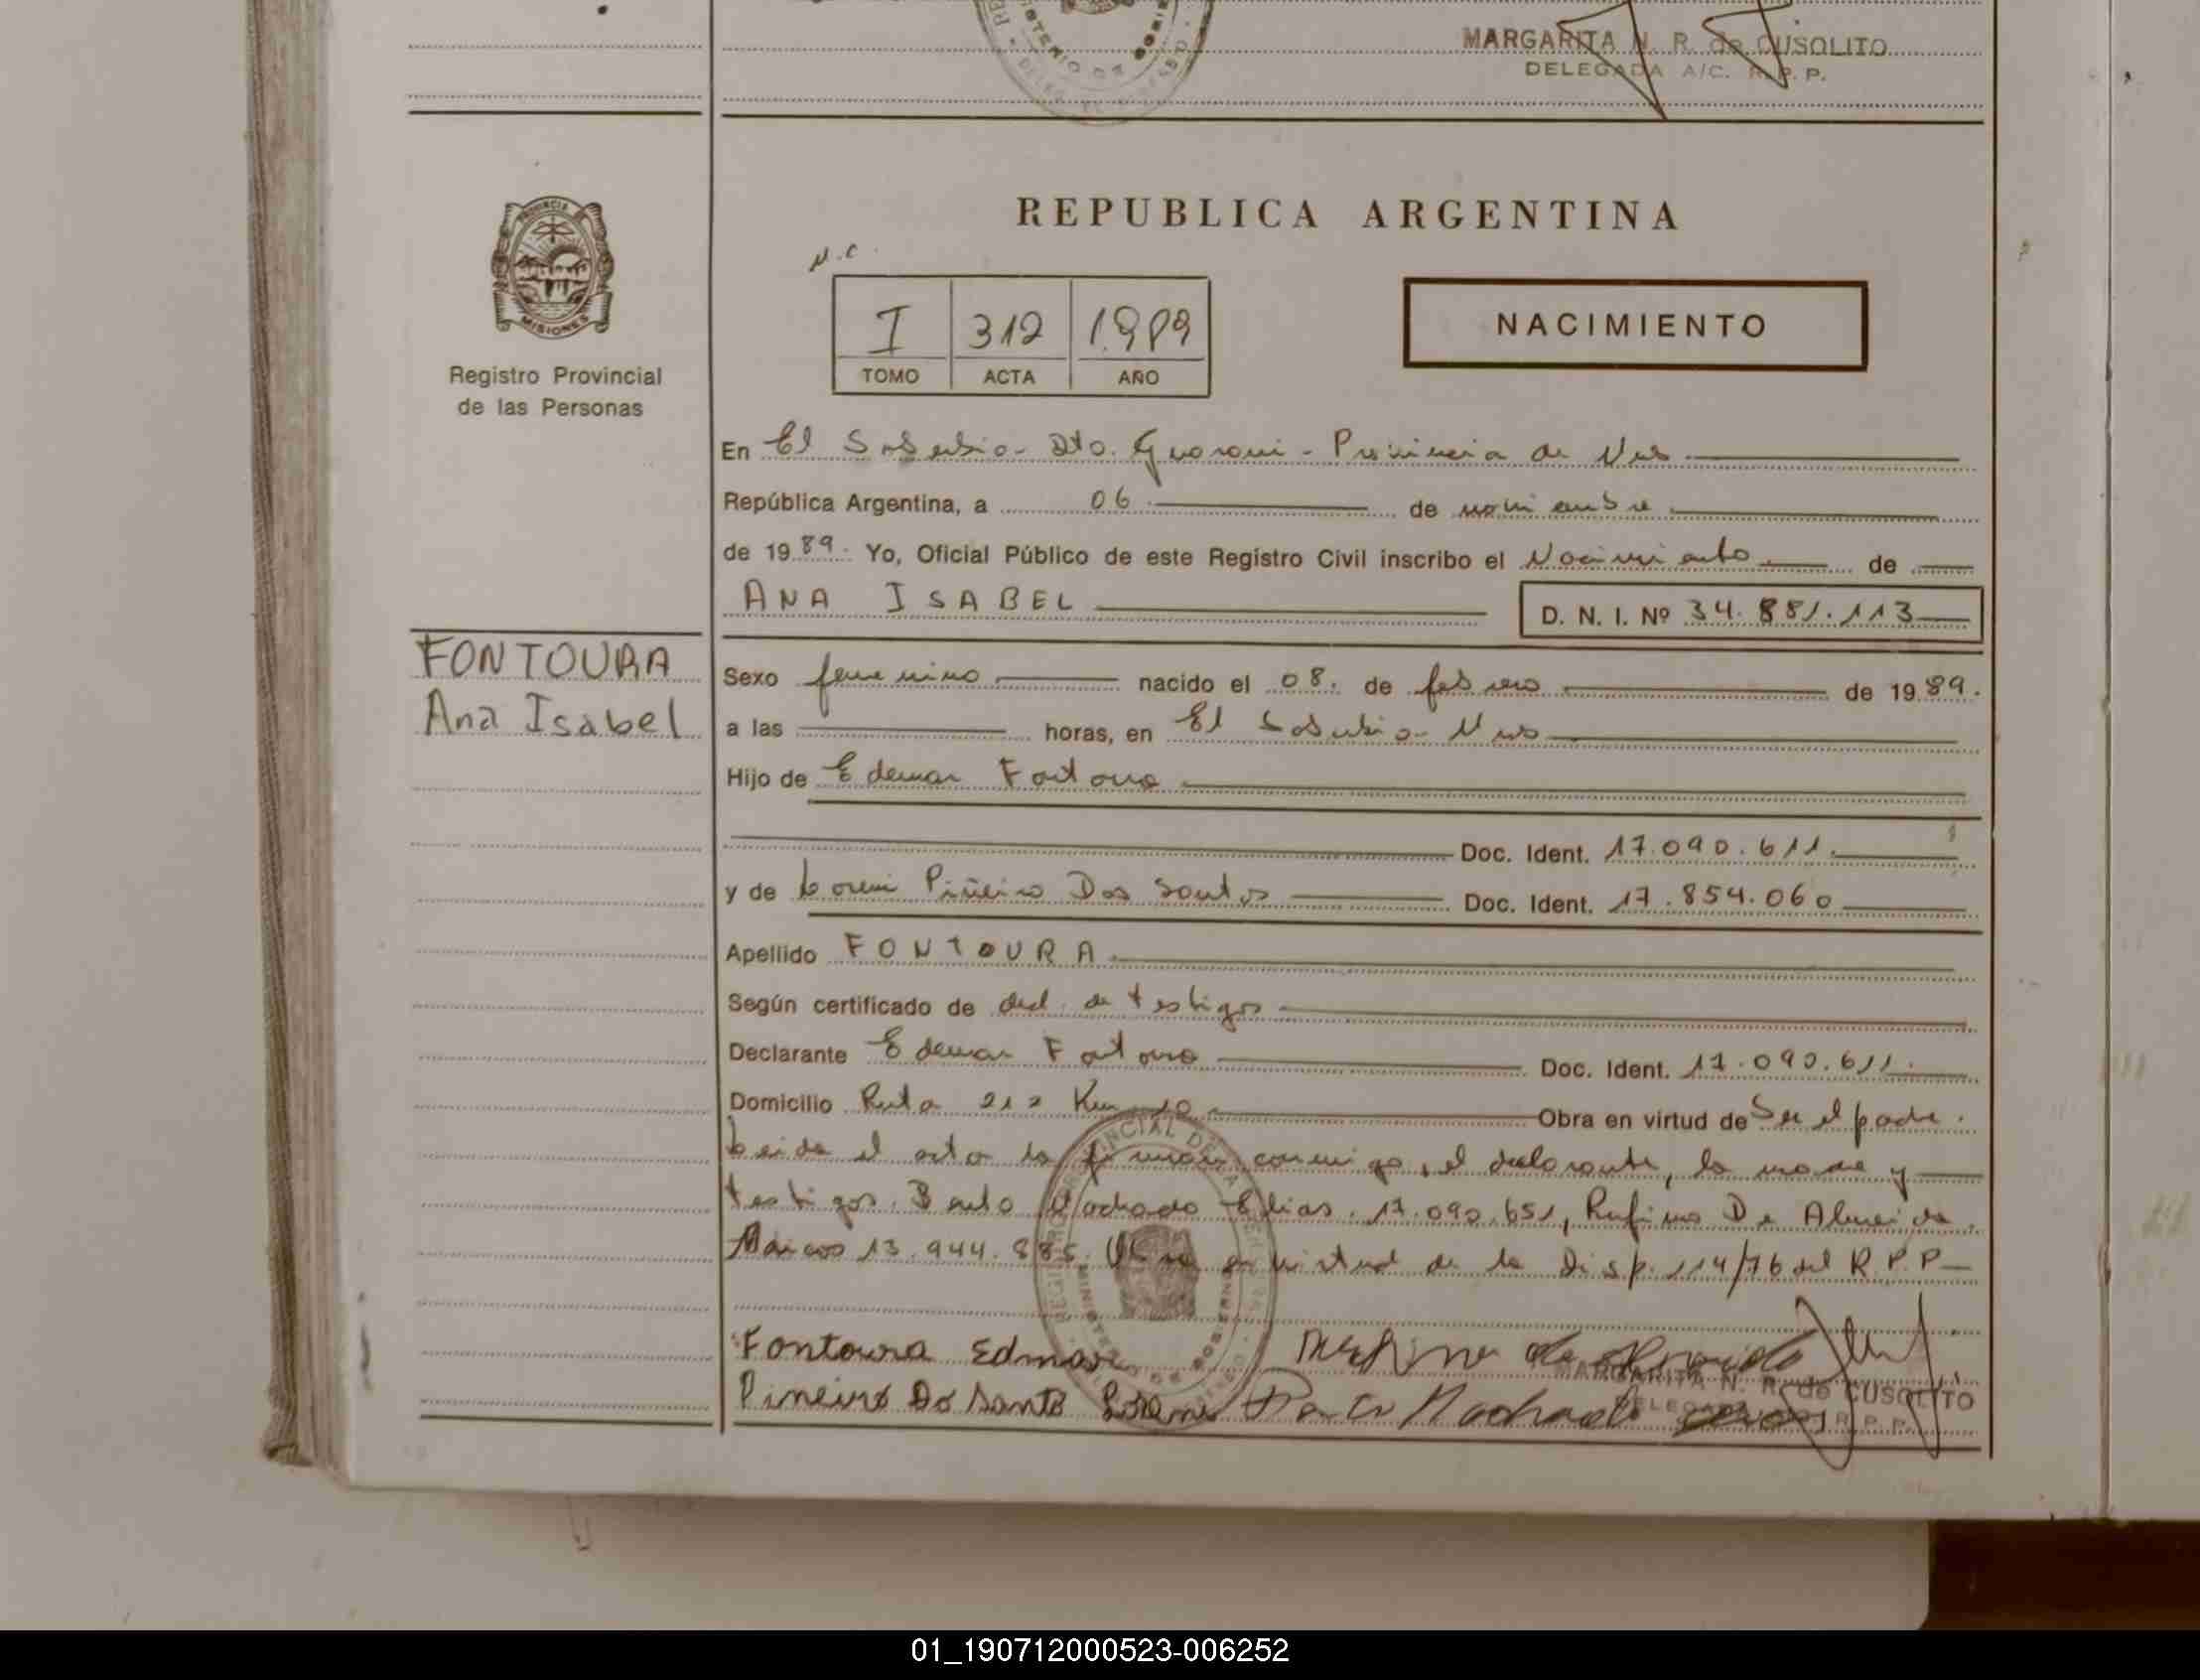 MARGARITA N. R. de CUSOLITO
DELEGADA A/C. R. P. P.
PROVINCIA
MISIONES
Registro Provincial
de las Personas
REPUBLICA ARGENTINA
N.C.
I 312 1989
TOMO ACTA AÑO
NACIMIENTO
En El Soberbio - Dto. Guarani - Provincia de Mnes
República Argentina, a 06 de noviembre
de 1989. Yo, Oficial Público de este Registro Civil inscribo el Nacimiento de
ANA ISABEL D. N. I. Nº 34.881.113
FONTOURA
Ana Isabel
Sexo femenino nacido el 08. de febrero de 1989.
a las horas, en El Soberbio - Mnes
Hijo de Edemar Fontoura
Doc. Ident. 17.090.611.
y de Loreni Piñeiro Dos Santos Doc. Ident. 17.854.060
Apellido FONTOURA
Según certificado de decl. de testigos
Declarante Edemar Fontoura Doc. Ident. 17.090.611.
Domicilio Ruta 212 Km 10 Obra en virtud de Ser el padre.
Leida el acta la firman conmigo, el declarante, la madre y
testigos. Bento Machado Elias. 17.090.651, Rufino De Almeida
Marcos 13.944.885. en virtud de la Disp. 114/76 del R.P.P
Fontoura Edmar
Pineiro Do Santo Machado
MARGARITA N. R. de CUSOLITO
DELEGADA R. P. P.
01_190712000523-006252